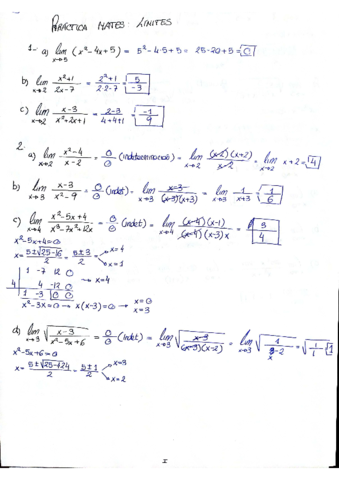 PRÁCTICA MATES: LÍMITES
1- a) lim x→5 (x²-4x+5) = 5²-4·5+5 = 25-20+5 = 0
b) lim x→2 x²+1 / 2x-7 = 2²+1 / 2·2-7 = 5 / -3
c) lim x→2 x-3 / x²+2x+1 = 2-3 / 4+4+1 = -1 / 9
2.
a) lim x→2 x²-4 / x-2 = 0/0 (indeterminación) = lim x→2 (x-2)(x+2) / x-2 = lim x→2 x+2 = 4
b) lim x→3 x-3 / x²-9 = 0/0 (indet) = lim x→3 x-3 / (x-3)(x+3) = lim x→3 1 / x+3 = 1/6
c) lim x→4 x²-5x+4 / x³-7x²+12x = 0/0 (indet) = lim x→4 (x-4)(x-1) / (x-4)(x-3)x = 3/4
x²-5x+4=0
x = 5±√25-16 / 2 = 5±3 / 2 x=4
x=1
1 -7 12 0
4 4 -12 0 → x=4
1 -3 0 0
x²-3x=0 → x(x-3)=0 → x=0
x=3
d) lim x→3 √ x-3 / x²-5x+6 = 0/0 (indet) = lim x→3 √ x-3 / (x-3)(x-2) = lim x→3 √ 1 / x-2 = √ 1/1 = 1
x²-5x+6=0
x = 5±√25-24 / 2 = 5±1 / 2 x=3
x=2